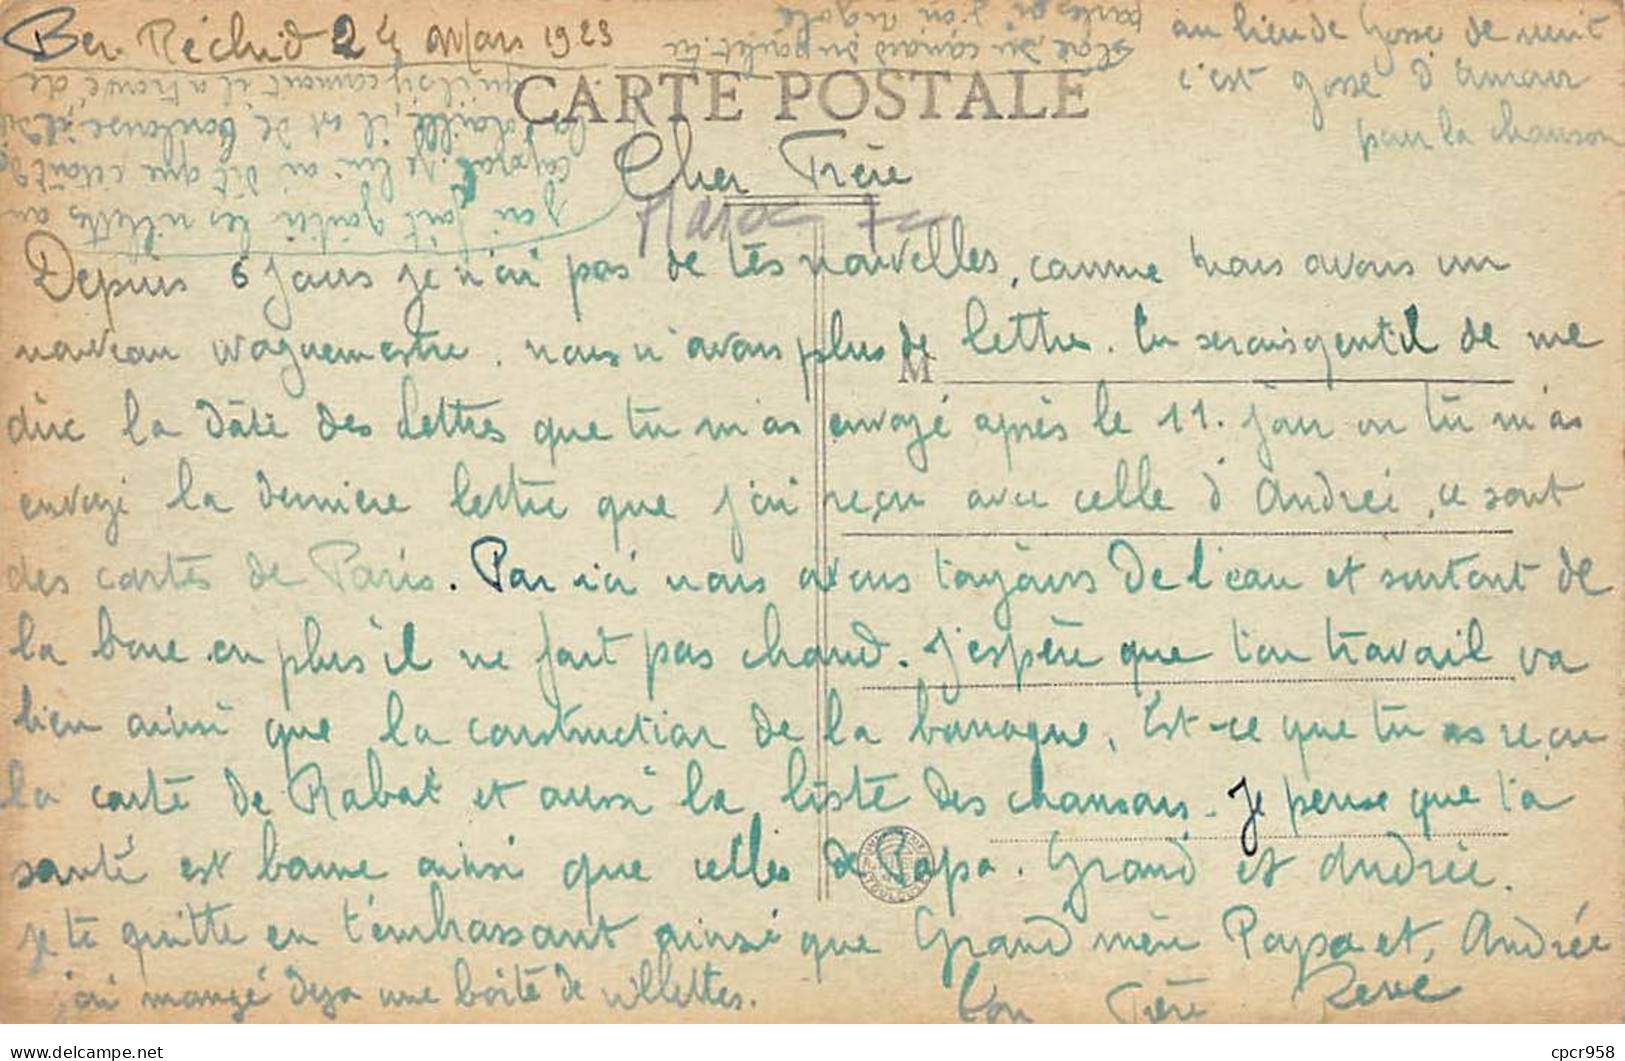 Ber Réchid 24 Mars 1923
CARTE POSTALE
au lieu de Gosse de
c'est gosse d'Amour
pour la chanson
Cher Frère
Maroc
Depuis 6 jours je n'ai pas de tes nouvelles, comme nous avons un
nouveau vaguemestre. nous n'avons plus de lettre. tu serais gentil de me
M
dire la date des lettres que tu m'as envoyé après le 11. jour ou tu m'as
envoyé la derniere lettre que j'ai reçu avec celle d'Andrée, ce sont
des cartes de Paris. Par ici nous avons toujours de l'eau et surtout de
la boue en plus il ne fait pas chaud. J'espère que ton travail va
bien ainsi que la construction de la baraque. Est-ce que tu as reçu
la carte de Rabat et aussi la liste des chansons. Je pense que ta
santé est bonne ainsi que celles de Papa. Grand et Andrée.
Je te quitte en t'embrassant ainsi que Grand mère Papa et, Andrée
j'ai mangé deja une boite de rillettes.
Ton Frère René
J'ai fait goûter les rillettes au
caporal je lui ai dit que c'était de
la volaille, il est de Toulouse il